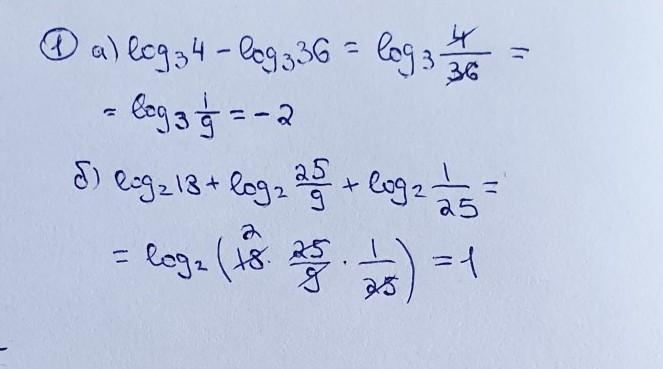 ① а) log₃4 - log₃36 = log₃ 4/36 =
= log₃ 1/9 = -2
б) log₂18 + log₂ 25/9 + log₂ 1/25 =
= log₂ (18 2 · 25/9 · 1/25) = 1